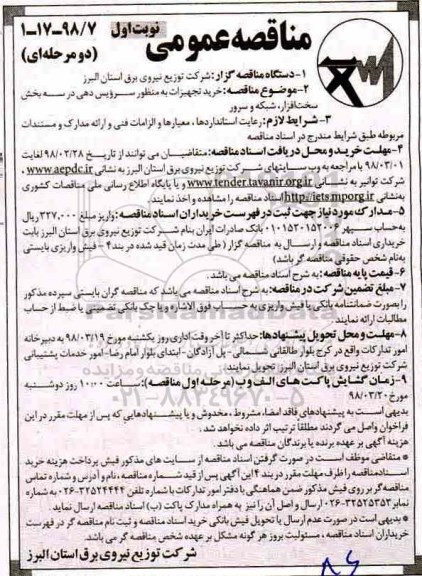 مناقصه عمومی
نوبت اول
۹۸/۷-۱۷-۱
(دو مرحله‌ای)
۱-دستگاه مناقصه گزار: شرکت توزیع نیروی برق استان البرز
۲-موضوع مناقصه: خرید تجهیزات به منظور سرویس دهی در سه بخش
سخت‌افزار، شبکه و سرور
۳- شرایط لازم: رعایت استانداردها، معیارها و الزامات فنی و ارائه مدارک و مستندات
مربوطه طبق شرایط مندرج در اسناد مناقصه
۴-مهلت خرید و محل دریافت اسناد مناقصه: متقاضیان می توانند از تاریخ ۹۸/۰۲/۲۸ لغایت
۹۸/۰۳/۰۱ با مراجعه به وب سایتهای شرکت توزیع نیروی برق استان البرز به نشانی www.aepdc.ir ،
شرکت توانیر به نشانی www.tender.tavanir.org.ir و یا پایگاه اطلاع رسانی ملی مناقصات کشوری
به‌نشانی http//iets.mporg.ir اسناد مناقصه را مشاهده و اخذ نمایند.
۵-مدارک مورد نیاز جهت ثبت در فهرست خریداران اسناد مناقصه: واریز مبلغ ۳۲۷,۰۰۰ ریال
به حساب سپهر ۰۱۰۱۵۲۰۱۵۲۰۰۶ بانک صادرات ایران بنام شرکت توزیع نیروی برق استان البرز بابت
خریداری اسناد مناقصه و ارسال به مناقصه گزار (طی مدت زمان قید شده در بند ۴ - فیش واریزی بایستی
به‌نام شخص حقوقی مناقصه گر باشد)
۶-قیمت پایه مناقصه: به شرح اسناد مناقصه می باشد.
۷-مبلغ تضمین شرکت در مناقصه: به شرح اسناد مناقصه می باشد که مناقصه گران بایستی سپرده مذکور
را بصورت ضمانتنامه بانکی یا فیش واریزی به حساب فوق الاشاره و یا چک بانکی تضمینی یا ضبط از حساب
مطالبات ارائه نمایند.
۸-مهلت و محل تحویل پیشنهادها: حداکثر تا آخر وقت اداری روز یکشنبه مورخ ۹۸/۰۳/۱۹ به دبیرخانه
امور تدارکات واقع در کرج بلوار طالقانی شمالی-پل آزادگان-ابتدای بلوار امام رضا-امور خدمات پشتیبانی
شرکت توزیع نیروی برق استان البرز تحویل نمایند.
۹-زمان گشایش پاکت های الف و ب (مرحله اول مناقصه): ساعت ۱۰:۰۰ روز دوشنبه
مورخ ۹۸/۰۳/۲۰
بدیهی است به پیشنهادهای فاقد امضا، مشروط، مخدوش و یا پیشنهادهایی که پس از مهلت مقرر در این
فراخوان واصل می گردند مطلقا ترتیب اثر داده نخواهد شد.
هزینه آگهی بر عهده برنده یا برندگان مناقصه می باشد.
* متقاضی موظف است در صورت گرفتن اسناد مناقصه از سایت های مذکور فیش پرداخت هزینه خرید
اسناد مناقصه را ظرف مهلت مقرر در بند ۴ این آگهی پس از قید شماره مناقصه، نام و آدرس و شماره تماس
مناقصه گر بر روی فیش مذکور ضمن هماهنگی با دفتر امور تدارکات با شماره تلفن ۳۲۵۲۴۴۴۴-۰۲۶ به شماره
نمابر ۳۲۵۲۵۳۵۳-۰۲۶ ارسال و اصل آن را نیز به همراه مدارک پاکت (ب) اسناد مناقصه ارسال نماید.
* بدیهی است در صورت عدم ارسال یا تحویل فیش بانکی خرید اسناد مناقصه و ثبت نام مناقصه گر در فهرست
خریداران اسناد مناقصه، مسئولیت بروز هر گونه مشکل بر عهده شخص مناقصه گر می باشد.
شرکت توزیع نیروی برق استان البرز